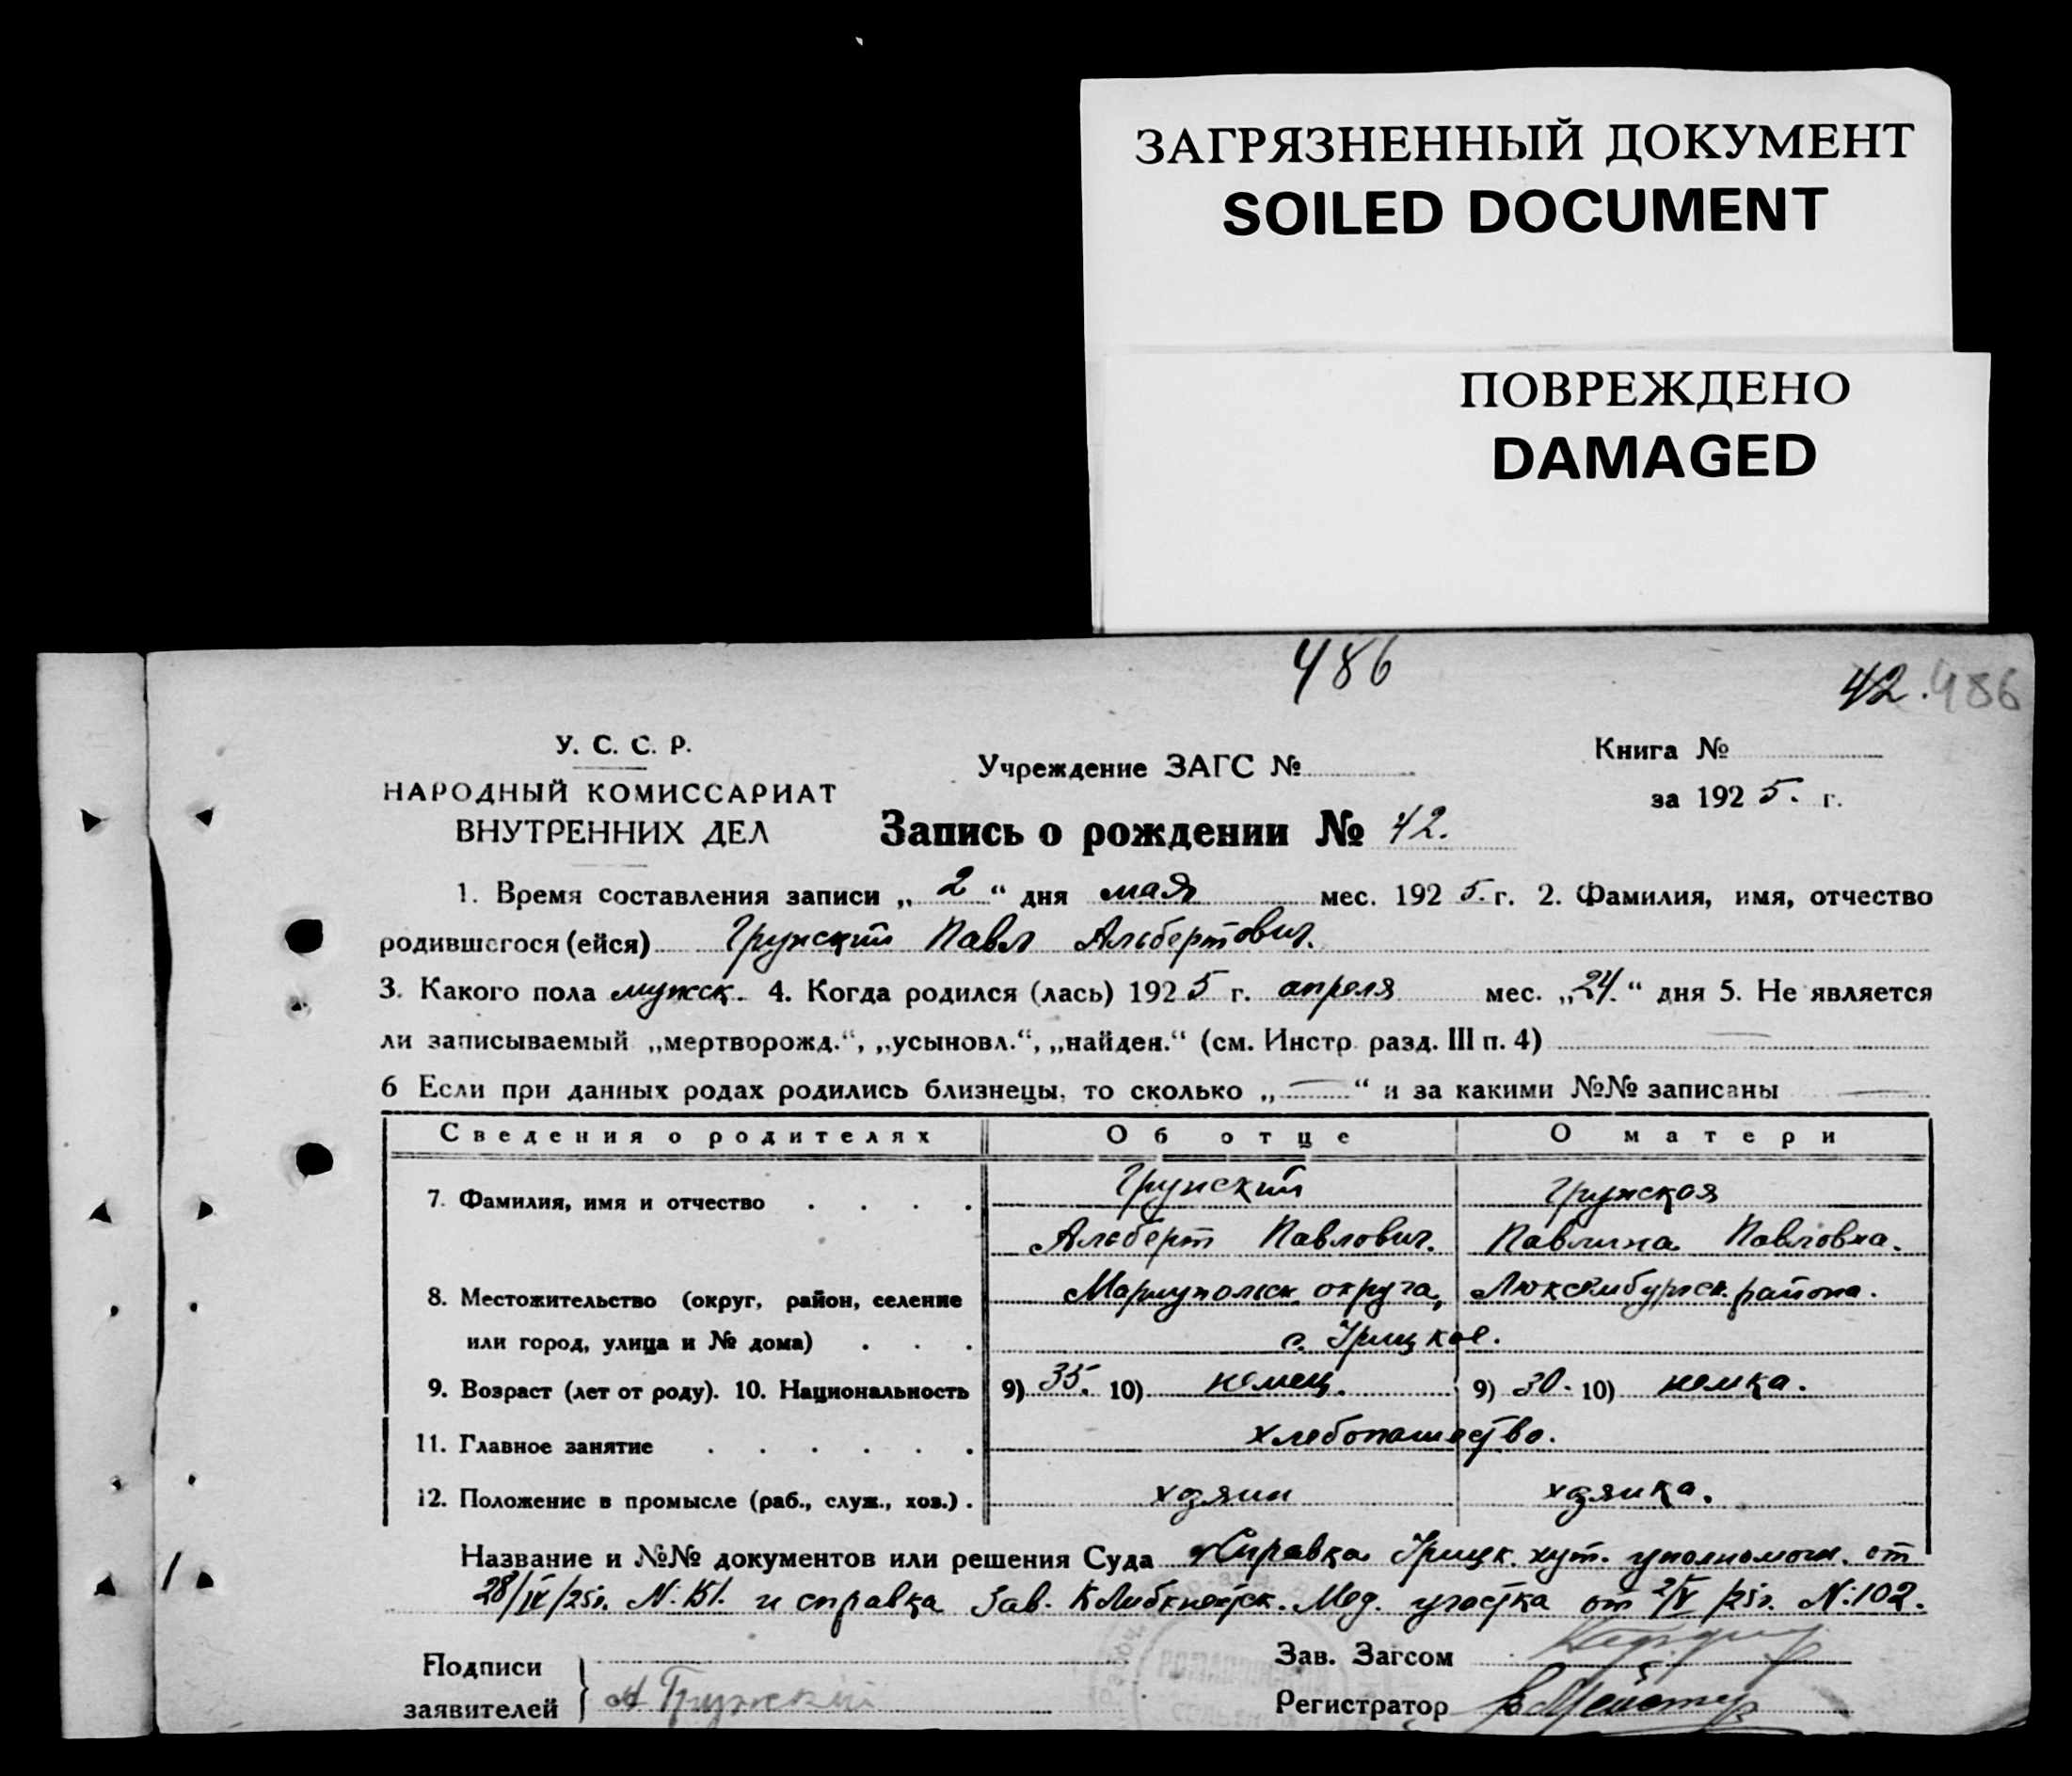 ЗАГРЯЗНЕННЫЙ ДОКУМЕНТ
SOILED DOCUMENT
ПОВРЕЖДЕНО
DAMAGED
486
42. 486
У. С. С. Р.
НАРОДНЫЙ КОМИССАРИАТ
ВНУТРЕННИХ ДЕЛ
Учреждение ЗАГС №
Книга №
за 1925. г.
Запись о рождении № 42.
1. Время составления записи „2“ дня мая мес. 1925. г. 2. Фамилия, имя, отчество
родившегося (ейся) Грунский Павл Альбертович.
3. Какого пола мужск. 4. Когда родился (лась) 1925 г. апреля мес. „24.“ дня 5. Не является
ли записываемый „мертворожд.“, „усыновл.“, „найден.“ (см. Инстр. разд. III п. 4) —
6 Если при данных родах родились близнецы, то сколько „—“ и за какими №№ записаны —
Сведения о родителях Об отце О матери
7. Фамилия, имя и отчество . . . . Грунский Грунская
Альберт Павлович. Павлина Павловна.
8. Местожительство (округ, район, селение Мариупольск. округа, Люксембургск. района.
или город, улица и № дома) . . . с. Урицкое.
9. Возраст (лет от роду). 10. Национальность 9) 35. 10) немец. 9) 30. 10) немка.
11. Главное занятие . . . . . . хлебопашество.
12. Положение в промысле (раб., служ., хоз.) . хозяин хозяйка.
Название и №№ документов или решения Суда Справка Урицк. хут. уполномоч. от
28/IV/25г. N. 151. и справка Зав. К Либкнехтск. Мед. участка от 2/V/25г. N: 102.
Подписи
заявителей
А Грунский
Зав. Загсом
Регистратор